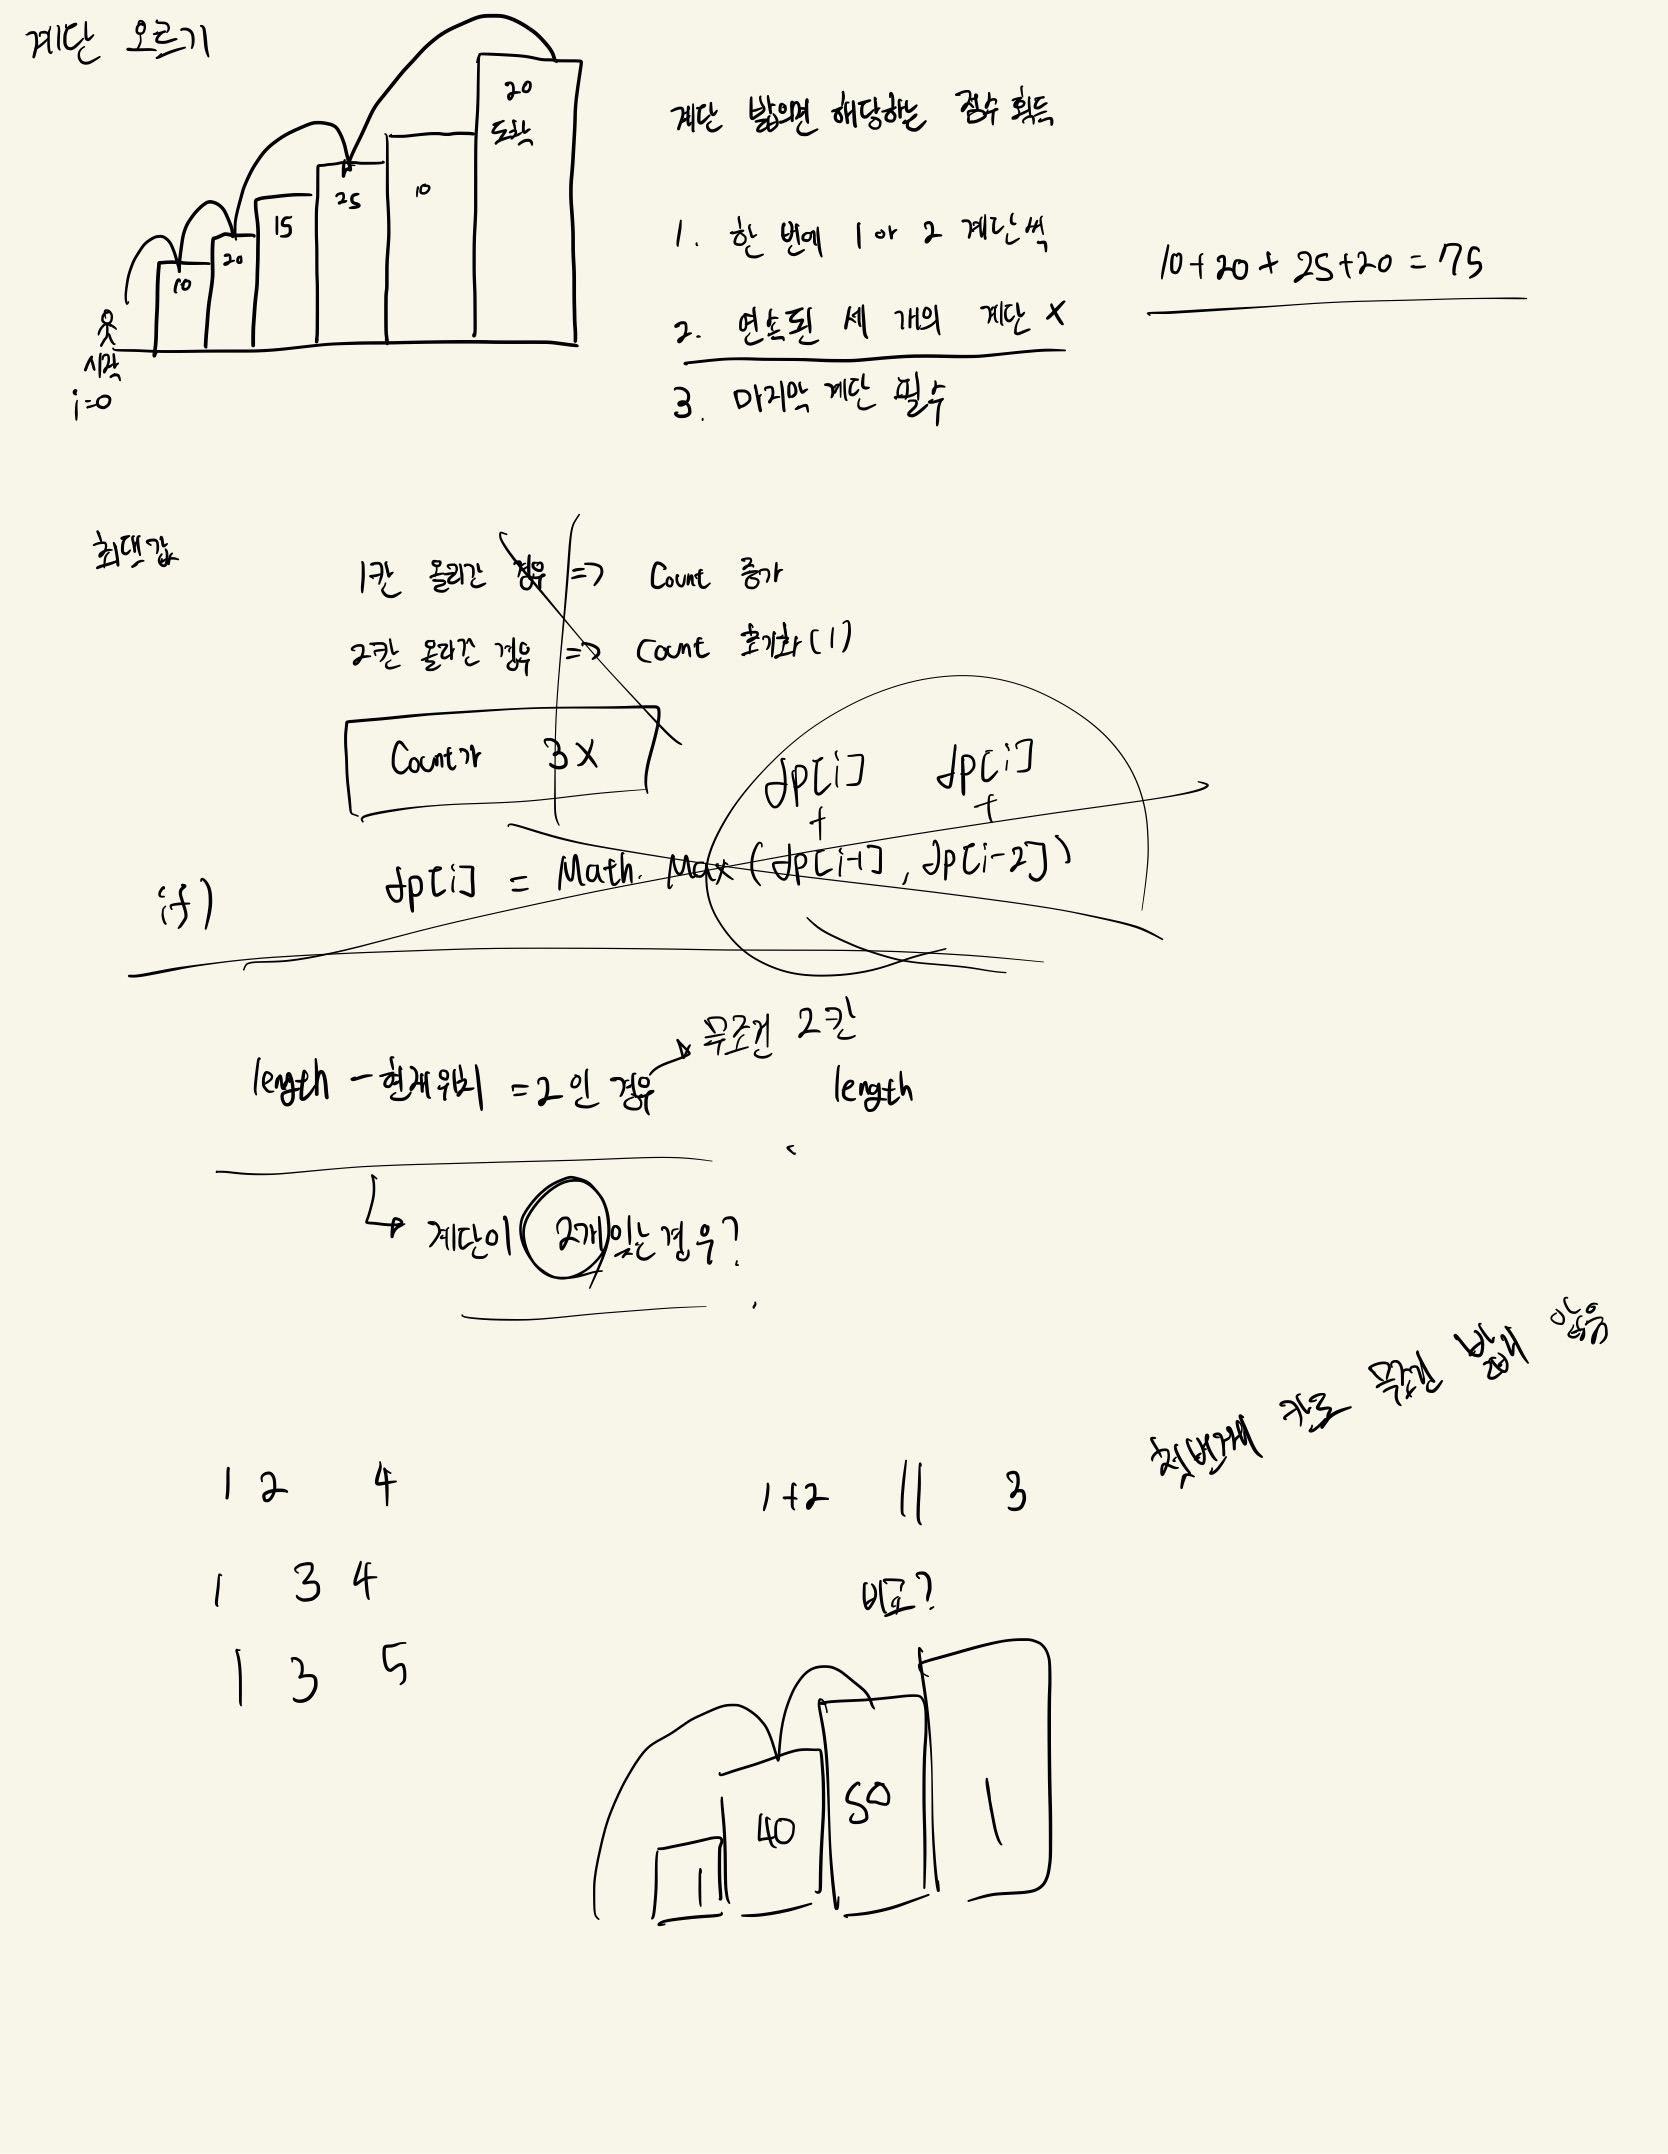 계단 오르기
20
도착
25
10
15
20
10
시작
i=0
계단 밟으면 해당하는 점수 획득
1. 한 번에 1 or 2 계단씩
2. 연속된 세 개의 계단 X
3. 마지막 계단 필수
10+20+25+20=75
최댓값
1칸 올라간 경우 => Count 증가
2칸 올라간 경우 => Count 초기화(1)
Count가 3X
dp[i] dp[i]
+ +
if) dp[i] = Math.Max(dp[i-1], dp[i-2])
무조건 2칸
length - 현재위치 = 2인 경우
length
계단이 2개 있는 경우?
첫번째 칸은 무조건 밟지 않음
1 2 4
1+2 || 3
1 3 4
비교?
1 3 5
1
40
50
1